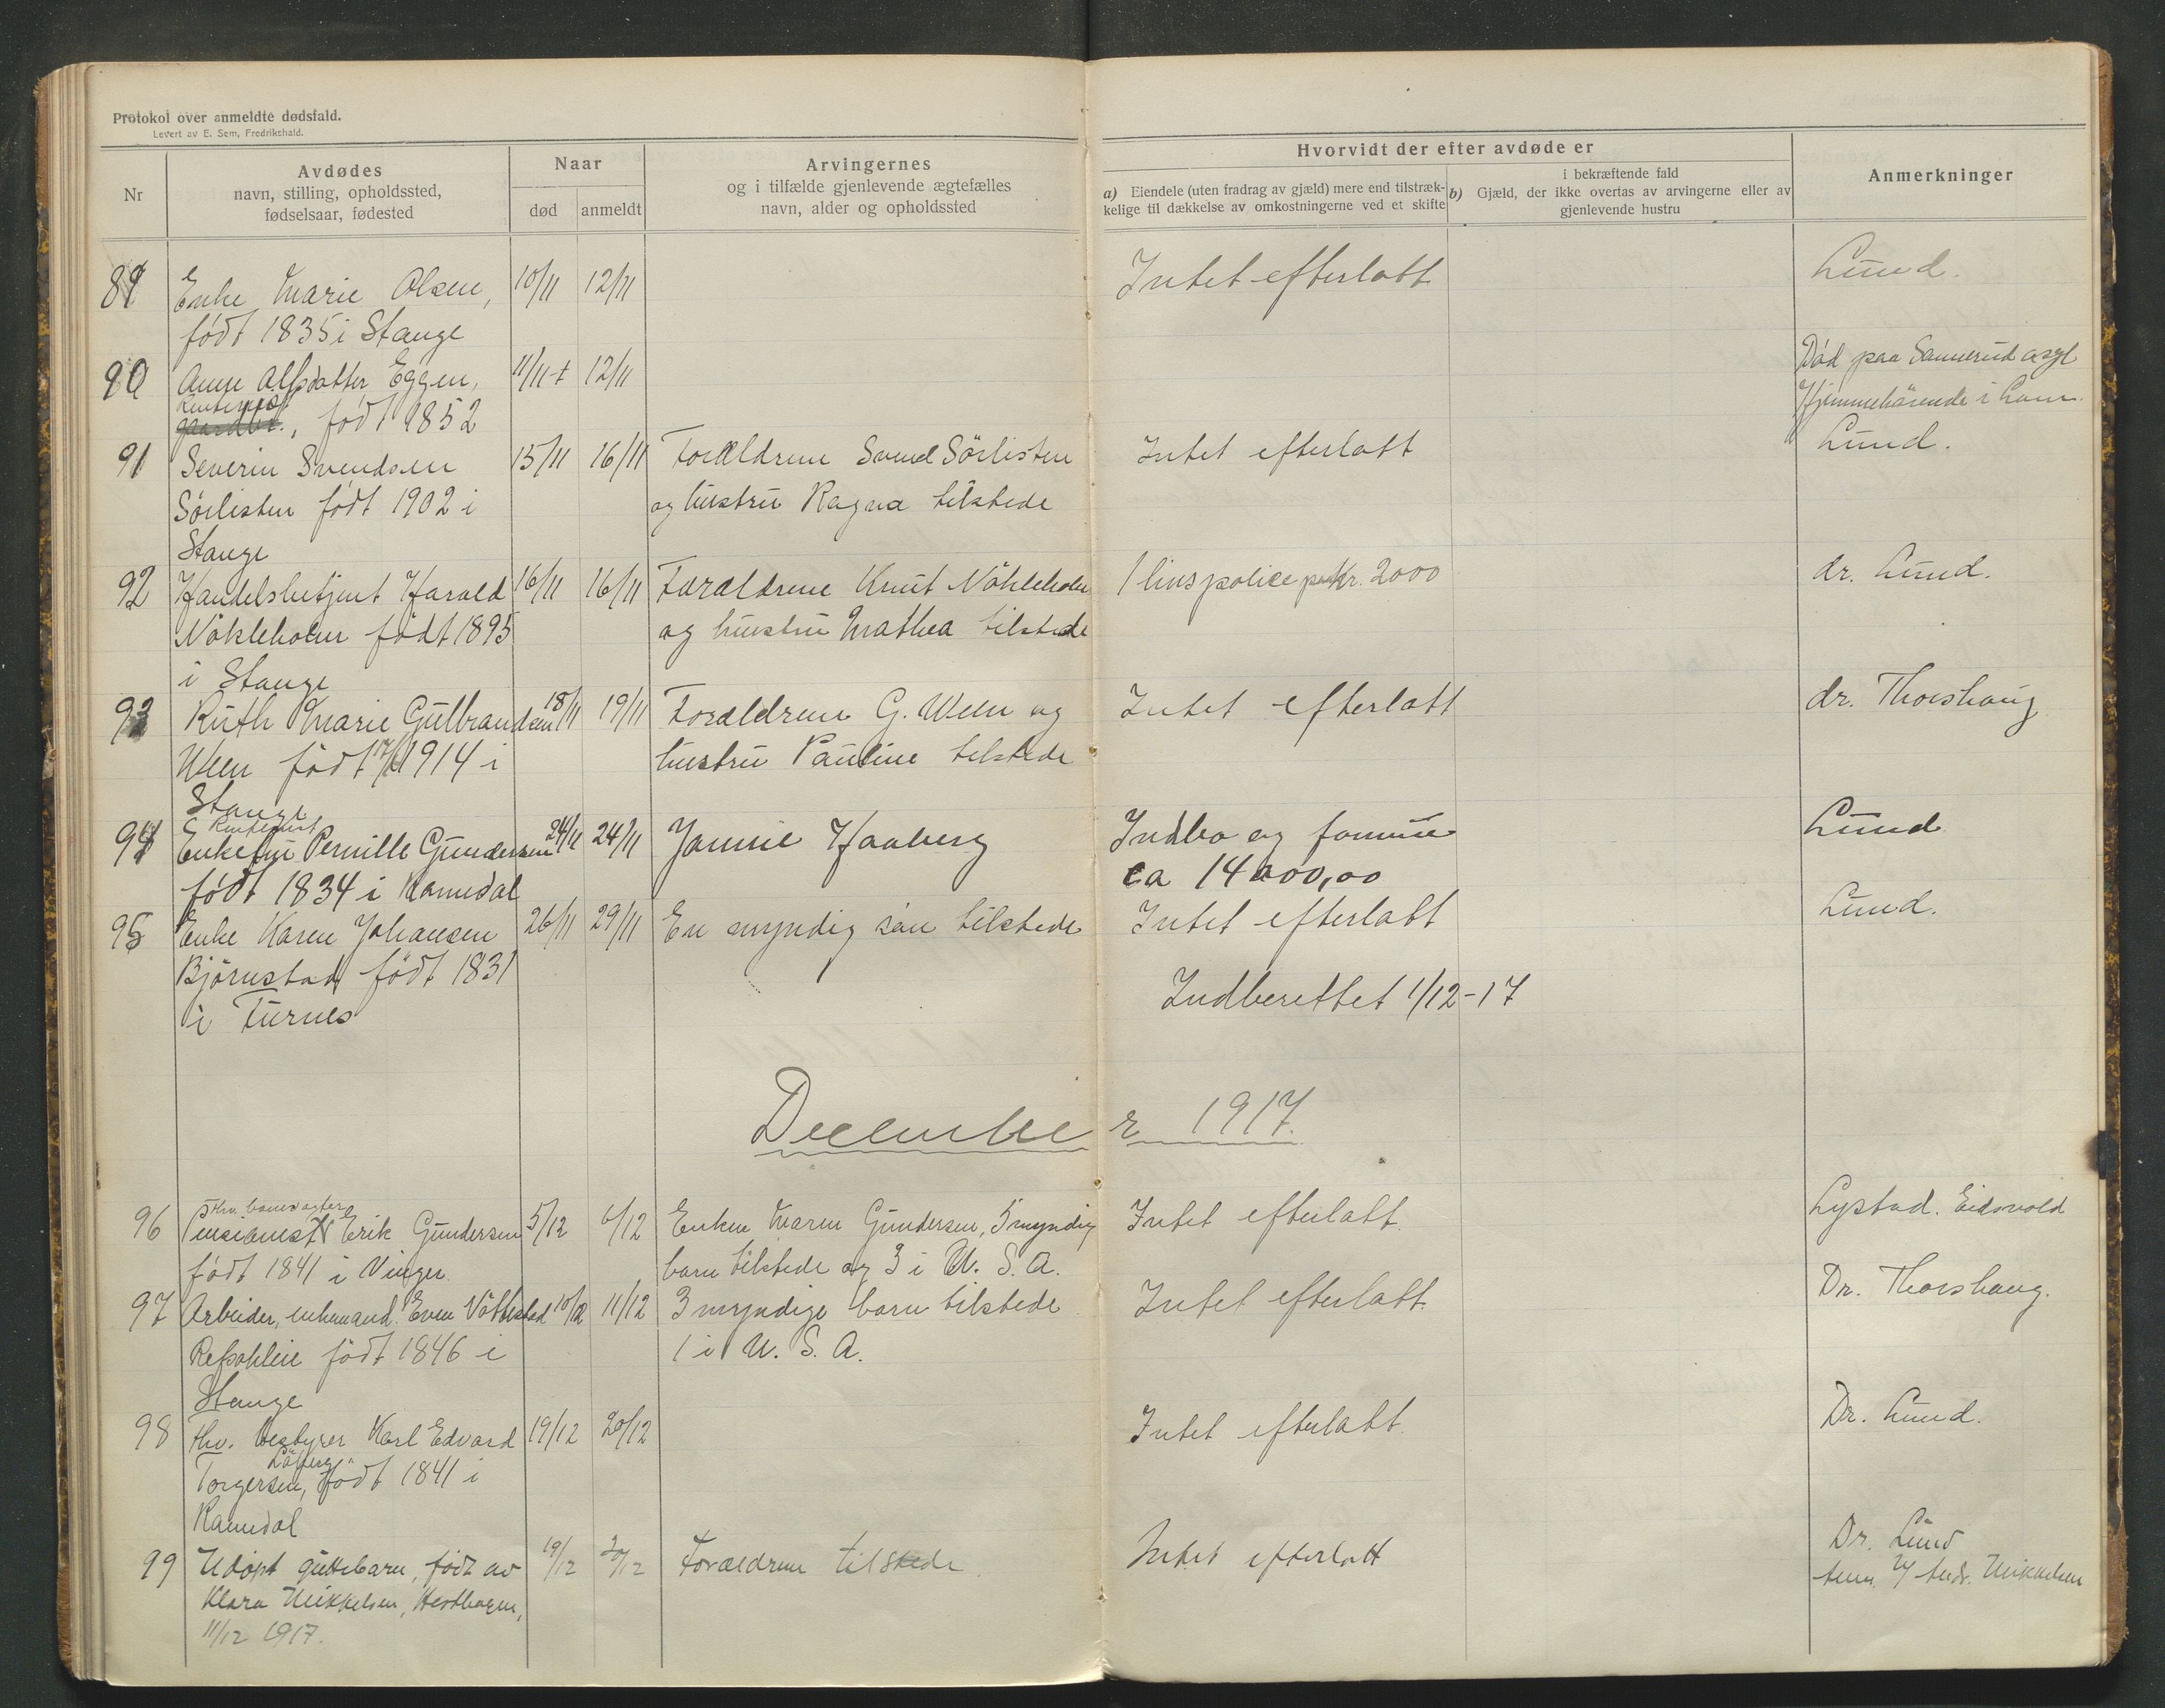 Protokol over anmeldte dødsfald.
Levert av E. Sem, Fredrikshald.
Nr
Avdødes
navn, stilling, opholdssted,
fødselsaar, fødested
Naar
død
anmeldt
Arvingernes
og i tilfælde gjenlevende ægtefælles
navn, alder og opholdssted
Hvorvidt der efter avdøde er
a) Eiendele (uten fradrag av gjæld) mere end tilstræk-
kelige til dækkelse av omkostningerne ved et skifte
i bekræftende fald
b) Gjæld, der ikke overtas av arvingerne eller av
gjenlevende hustru
Anmerkninger
89 Enke Marie Olsen, 10/11 12/11 Intet efterlatt Lund.
født 1835 i Stange
90 Anne Alfsdatter Eggen, 11/11 12/11 Død paa Sannerud asyl
født 1852 Hjemmehørende i Lom
91 Severin Svendsen 15/11 16/11 Forældrene Svend Sörlisten Intet efterlatt Lund.
Sörlisten født 1902 i og hustru Ragna tilstede
Stange
92 Handelsbetjent Harald 16/11 16/11 Forældrene Knut Nökleholm 1 livspolice paa Kr. 2000 dr. Lund.
Nökleholm født 1895 og hustru Mathea tilstede
i Stange
93 Ruth Marie Gulbrandsen 18/11 19/11 Forældrene G. Ween og Intet efterlatt dr. Thorshaug
Ween født 1914 i hustru Pauline tilstede
Stange
94 Enkefru Pernille Gundersen 24/11 24/11 Jannie Haaberg Indbo og formue Lund
født 1834 i Romedal ca 14000,00
95 Enke Karen Johansen 26/11 29/11 En myndig sön tilstede Intet efterlatt Lund.
Björnstad født 1831
i Furnes
Indberettet 1/12-17
December 1917.
96 Pensionist Erik Gundersen 5/12 6/12 Enken Maren Gundersen, 5 myndig Intet efterlatt. Lystad. Eidsvold
født 1841 i Vinger. barn tilstede og 3 i U. S. A.
97 Arbeider, enkemand Even Vöttestad 10/12 11/12 3 myndige barn tilstede Intet efterlatt. Dr. Thorshaug.
født 1846 i 1 i U. S. A.
Stange
98 fhv. bestyrer Karl Edvard 19/12 20/12 Intet efterlatt. Dr. Lund.
Torgersen, født 1841 i
Romedal
99 Udöpt guttebarn, født av 19/12 20/12 Forældrene tilstede. Intet efterlatt Dr. Lund
Klara Mikkelsen, Hesthagen, Mikkelsen
11/12 1917.